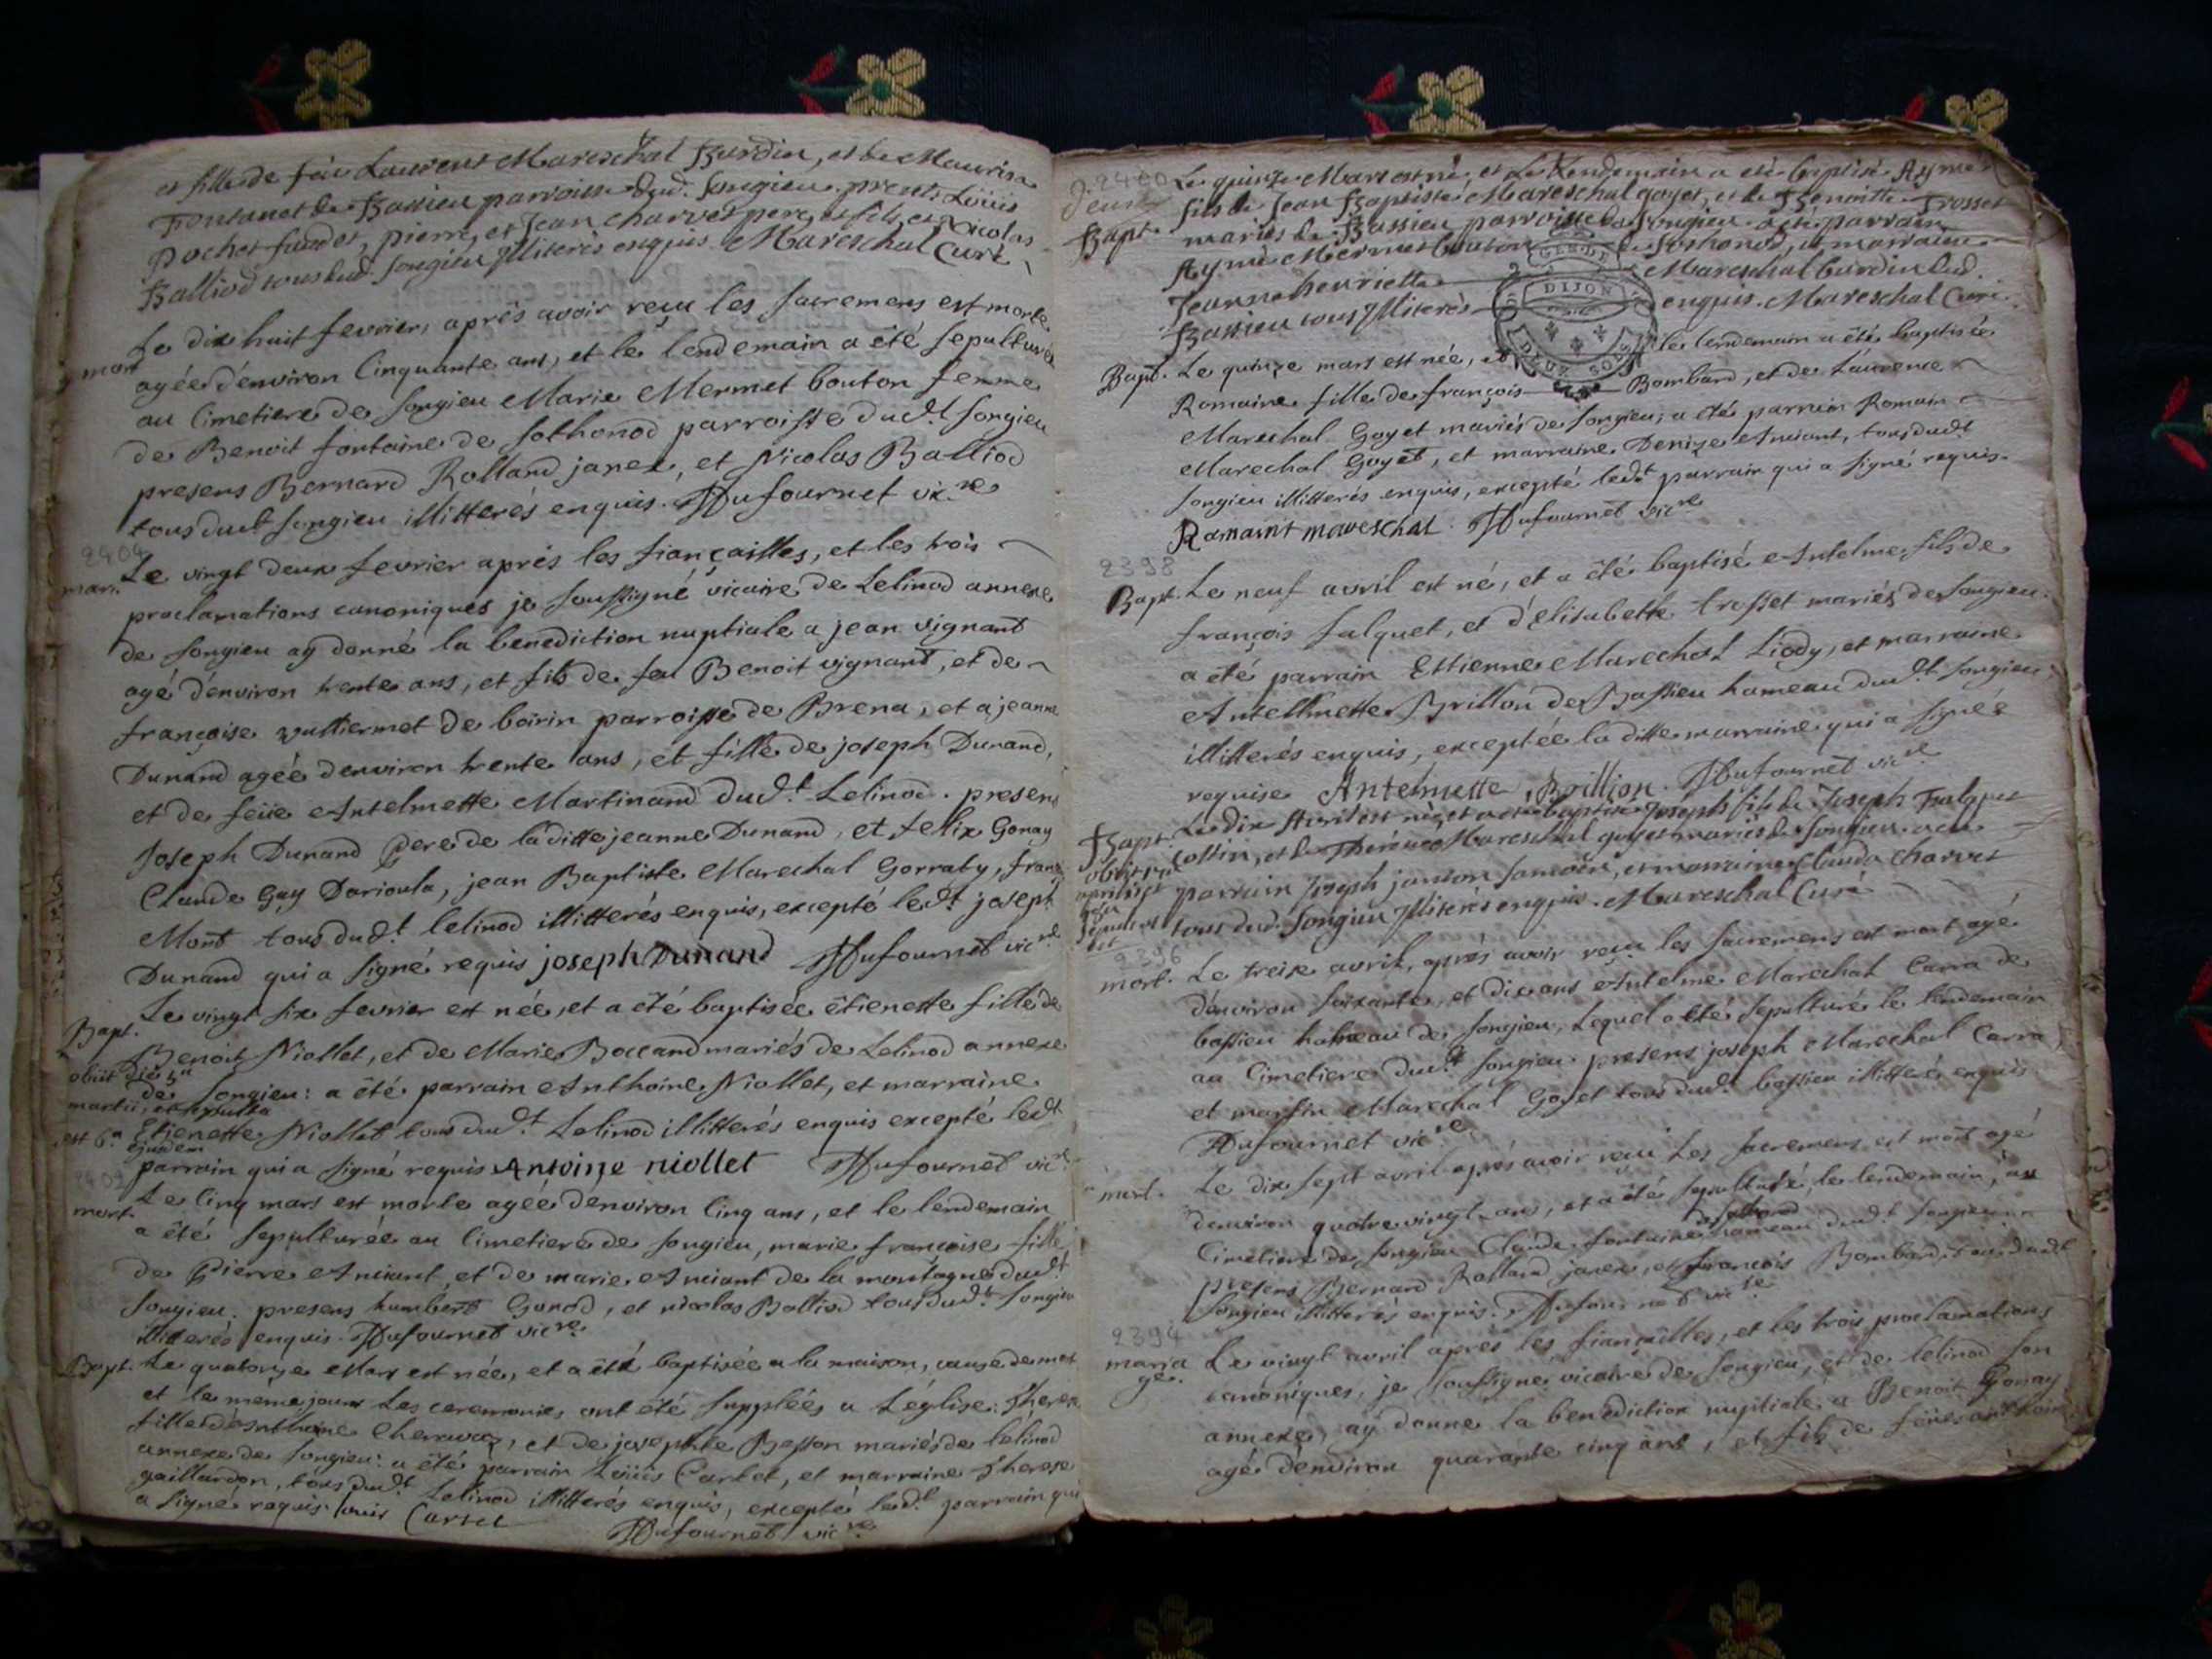 et fille de feu Laurent Mareschal Burdin, et de Maurisa
Fontanet de Bassieu parroisse dud. Songieu. presents Loüis
Pochet faudet, pierre, et Jean charvet pere, et fils, et Nicolas
Balliod tous dud. Songieu Illiterés enquis. Mareschal Curé
mort
Le dix huit fevrier, aprés avoir reçu les sacremens est morte
agée d'environ Cinquante ans, et le lendemain a été sepulturée
au Cimetiere de Songieu Marie Mermet bouton femme
de Benoit fontaine de Sothonod parroisse dud.t Songieu
presens Bernard Rolland janex, et Nicolas Balliod
tous dud.t Songieu illitterés enquis. Dufournet vic.re
2404
mari.
Le vingt deux fevrier aprés les fiançailles, et les trois
proclamations canoniques je soussigné vicaire de Lelinod annexe
de Songieu aÿ donné la benediction nuptiale a jean vignant
agé d'environ trente ans, et fils de feu Benoit vignant, et de
françoise vulliermet de boirin parroisse de Brena, et a jeanne
Dunand ageé d'environ trente ans, et fille de joseph Dunand,
et de feüe Antelmette Martinand dud.t Lelinod. presens
Joseph Dunand pere de la ditte jeanne Dunand, et felix Gonay
Claude Guy Darioula, jean Baptiste Marechal Gorraty, franç
Mont tous dud.t lelinod illitterés enquis, excepté led.t joseph
Dunand qui a signé requis joseph Dunand Dufournet vic.re
Bapt.
Le vingt six fevrier est née, et a été baptisée étienette fille de
Benoit Niollet, et de Marie Boccand mariés de Lelinod annexe
obiit die 5a
de Songieu: a été parrain Anthoine Niollet, et marraine
martii, et sepulta
Etienette Niollet tous dud.t Lelinod illitterés enquis excepté led.t
est 6a ejusdem
parrain qui a signé requis Antoine niollet Dufournet vic.re
mort.
Le cinq mars est morte agée d'environ cinq ans, et le lendemain
a été sepulturée au Cimetiere de Songieu, marie françoise fille
de Pierre Anciant, et de marie Anciant de la montagne dud.t
Songieu. presens humbert Gonod, et nicolas Balliod tous dud.t Songieu
illiterés enquis. Dufournet vic.re
Bapt.
Le quatorze Mars est née, et a été baptisée a la maison, cause de mort
et le même jour Les ceremonies ont été supplées a L'église: Therese
fille d'Anthoine Cherrvaz, et de josephte Besson mariés de lelinod
annexe de Songieu: a été parrain Loüis Carlet, et marraine Therese
gaillardon, tous dud.t Lelinod illitterés enquis, excepté led.t parrain qui
a signé requis. louis Carlet
Dufournet vic.re
2400
deux
Bapt.
Le quinze Mars est né, et Le Lendemain a été baptisé Aymé
fils de Jean Baptiste Mareschal goyet, et de Benoitte Trosset
mariés de Bassieu parroisse de Songieu. a été parrain
Aymé Mermet bouton de Sothonod, et marraine
Jeanne henriette Mareschal burdin dud.
Bassieu tous Illiterés enquis. Mareschal Curé
G. DE DIJON
DEUX SOLS
Bapt.
Le quinze mars est née, et le lendemain a été baptisée
Romaine fille de françois Bombard, et de Laurence
Marechal Goyet mariés de Songieu; a été parrain Romain
Marechal Goyet, et marraine Denize Anciant, tous dud.t
Songieu illitterés enquis, excepté led.t parrain qui a signé requis.
Romaint mareschal. Dufournet vic.re
2398
Bapt.
Le neuf avril est né, et a été baptisé Antelme fils de
françois falquet, et d'Elisabette trosset mariés de Songieu.
a été parrain Estienne Marechal Liody, et marraine
Antelmette Brillon de Bassieu hameau dud.t Songieu
illitterés enquis, exceptée la ditte marraine qui a signée
requise Antelmette Brillion. Dufournet vic.re
Bapt.
Le dix Avril est né, et a été baptisé Joseph fils de Joseph Falquet
Collin, et de Thérèse Mareschal goyet mariés de Songieu. a été
parrain Joseph janson, et marraine Clauda charvet
tous dud. Songieu Illiterés enquis. Mareschal Curé
2396
mort.
Le treize avril, aprés avoir reçu les sacremens est mort agé
d'environ soixante, et dix ans Antelme Marechal Carra de
bassieu hameau de Songieu, Lequel a été sepulturé le lendemain
au Cimetiere dud.t Songieu. presens joseph Marechal Carra,
et martin Marechal Goyet tous dud.t bassieu illitterés enquis
Dufournet vic.re
mort.
Le dix sept avril aprés avoir reçu Les sacremens est mort agé
d'environ quatre vingt ans, et a été sepulturé, le lendemain, au
Cimetiere de Songieu Claude fontaine de sothonod hameau dud.t Songieu
presens Bernard Rolland janex, et françois Bombard tous dud.t
Songieu illitterés enquis. Dufournet vic.re
2394
maria
ge.
Le vingt avril aprés les fiançailles, et les trois proclamations
canoniques, je soussigné vicaire de Songieu, et de lelinod son
annexe, aÿ donné la benediction nuptiale a Benoit Gonay
agé d'environ quarante cinq ans, et fils de feües anthoine